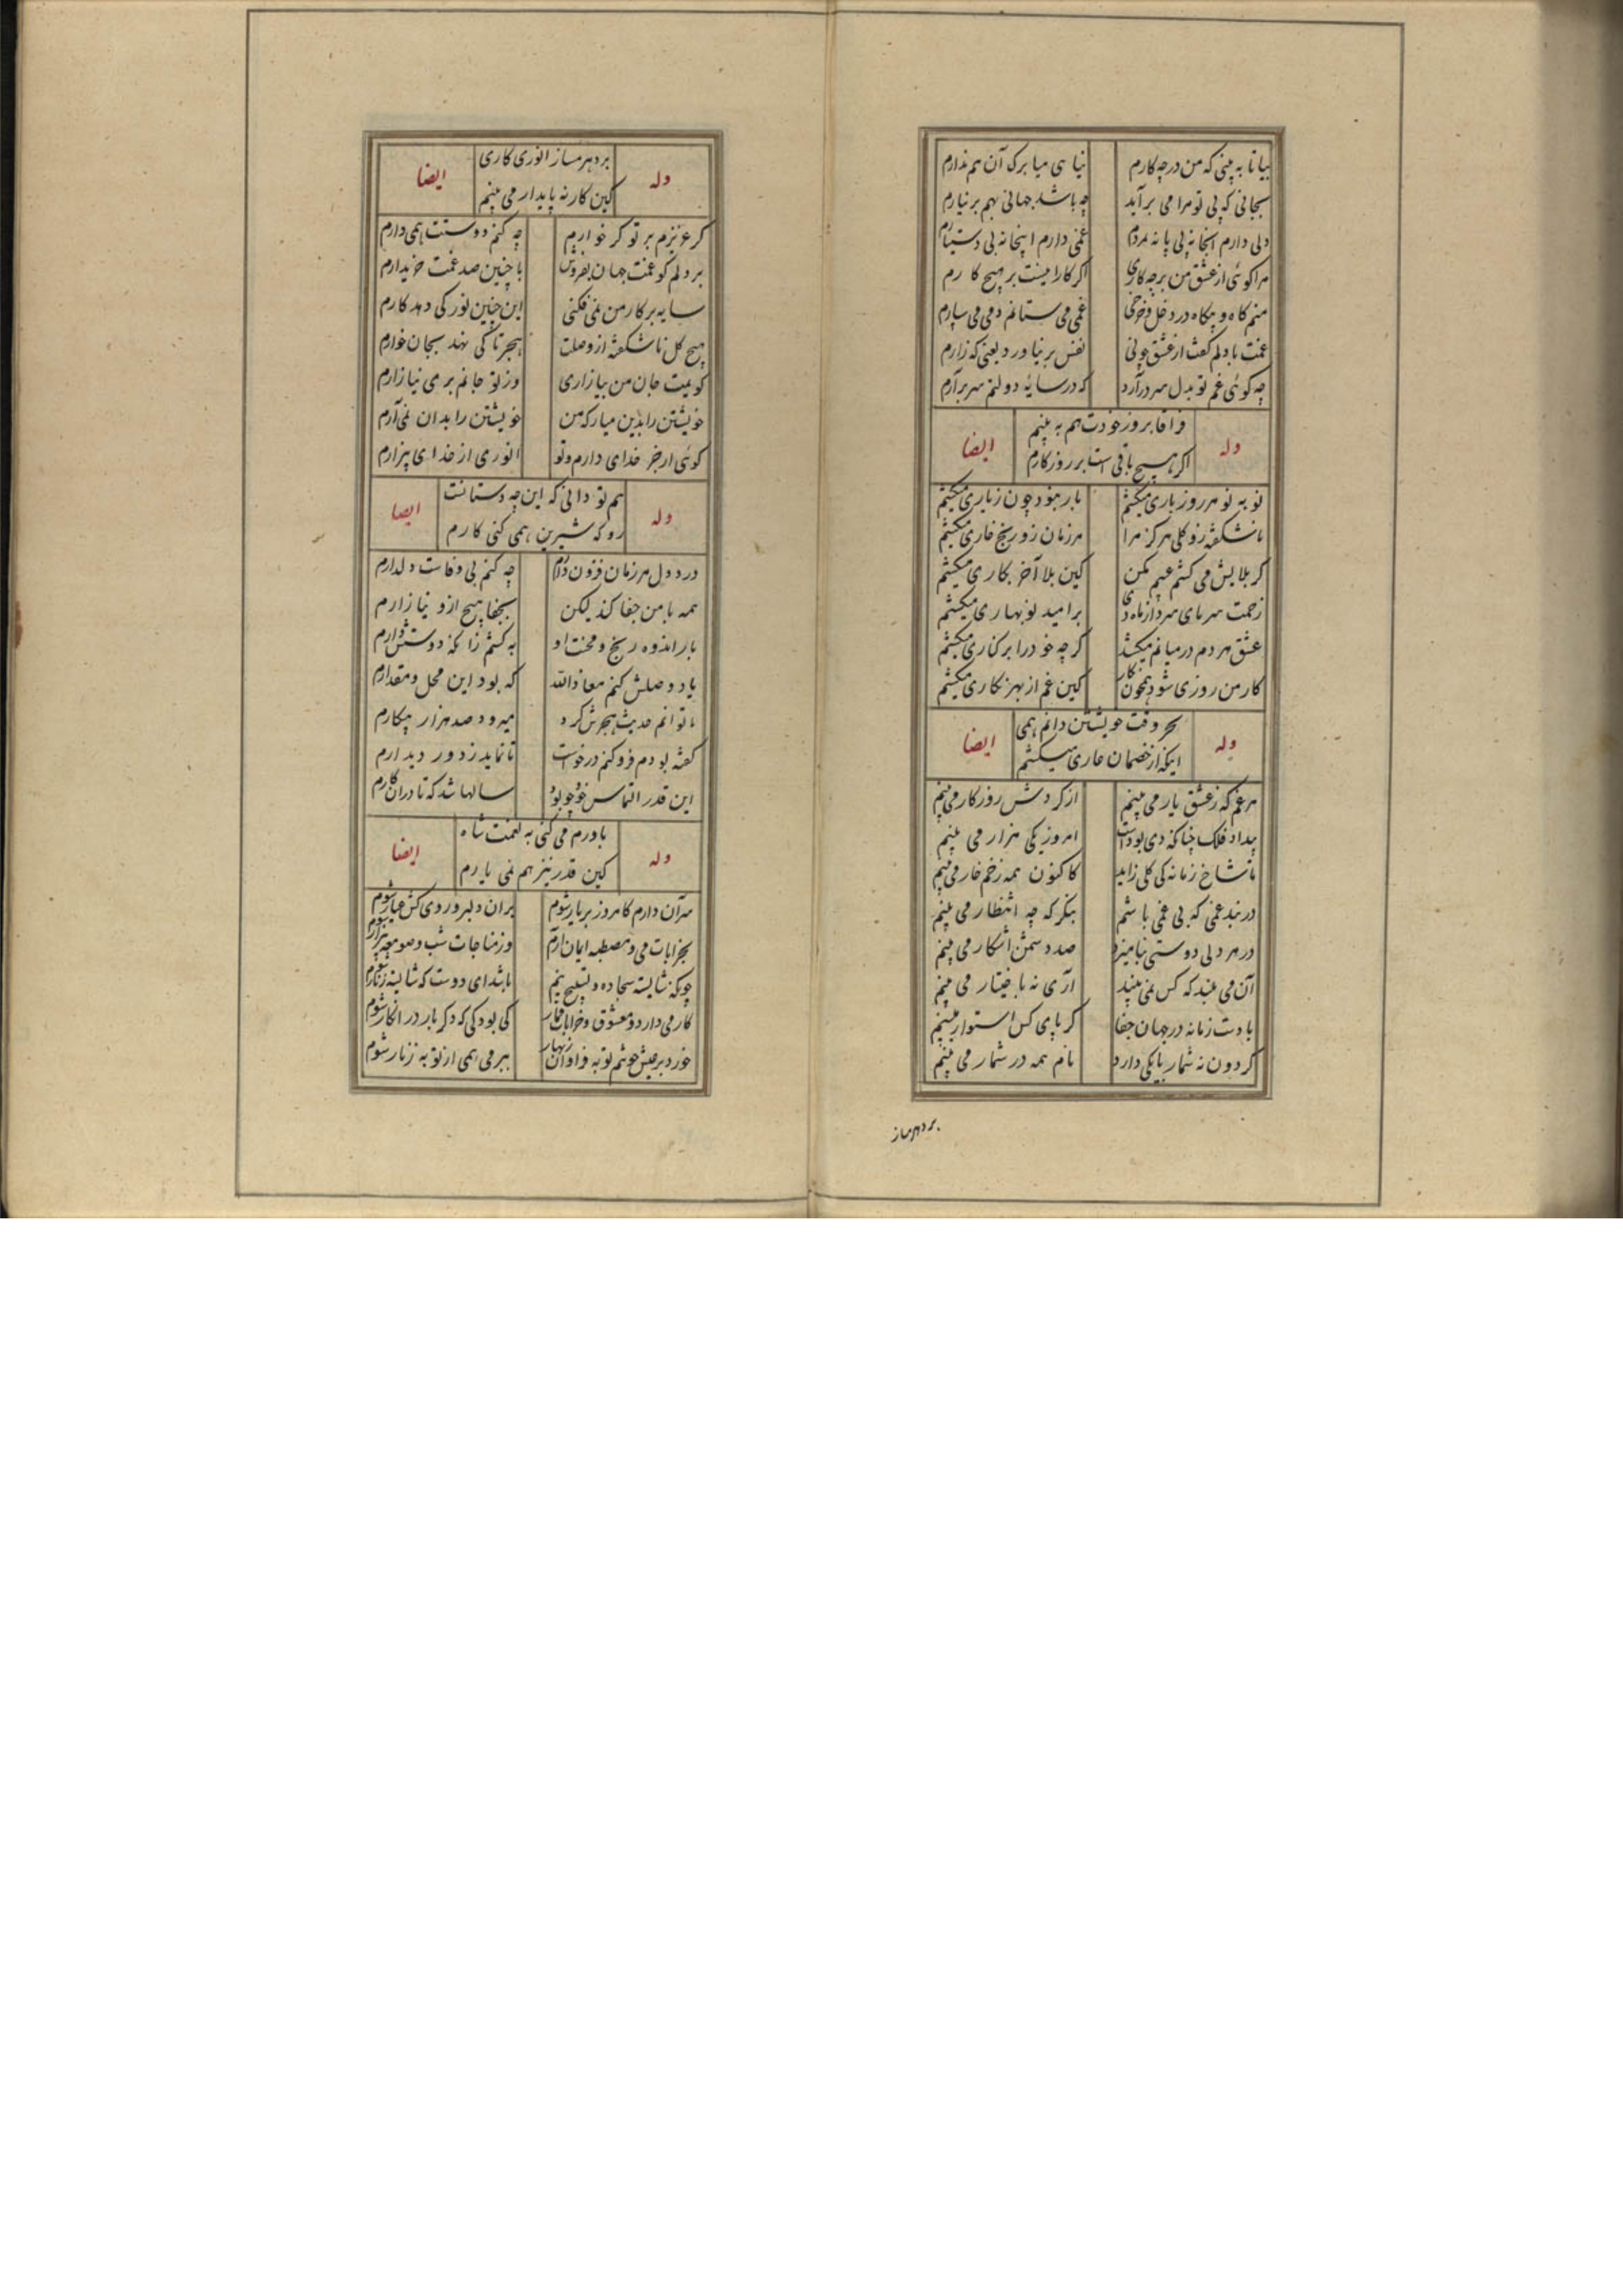 بیا تا به بینی که من در چه کارم
نیایی میا برک آن هم ندارم
بجانی که بی تو مرا می برآید
چه باشد جهانی بهم بر نیارم
دلی دارم اینجا نه بی پا نه مردم
غمی دارم اینجا نه بی دستیارم
مرا کوئی از عشق من بر چه کاری
اکر کارم اینست بر هیچ کارم
منم کاه و بیکاه در دخل و خرجی
غمی می ستانم دمی می سپارم
غمت با دلم کفت از عشق چونی
نفس بر نیاورد یعنی که زارم
چه کوئی غم تو بدل سر درآرد
که در سایه دولتم سر برآرم
وله
فراقا بروز خودت هم به بینم
اکر هیچ باقی است بر روزکارم
ایضا
نو به نو هر روز باری میکشم
بار نبود چون ز یاری میکشم
ناشکفته زو کلی هرکز مرا
هر زمان زو رنج خاری میکشم
کر بلایش می کشم عیبم مکن
کین بلا آخر بکاری میکشم
زحمت سرمای سرد از ماه دی
بر امید نوبهاری میکشم
عشق هر دم در میانم میکشد
کرچه خود را بر کناری میکشم
کار من روزی شود همچون نکار
کین غم از بهر نکاری میکشم
وله
بحر وقت خویشتن دانم همی
اینکه از خصمان عاری میکشم
ایضا
هر غم که ز عشق یار می بینم
از کردش روزکار می بینم
بیداد فلک چنانکه دی بودست
امروز یکی هزار می بینم
تا شاخ زمانه کی کلی زاید
کاکنون همه زخم خار می بینم
در بند غمی که بی غمی باشم
بنکر که چه انتظار می بینم
در هر دلی دوستی نیامیزد
صد دشمن آشکار می بینم
آن می بیند که کس نمی بیند
آری نه باختیار می بینم
با دست زمانه در جهان جفا
کر پای کس استوار می بینم
کردون نه شمار با یکی دارد
نام همه در شمار می بینم
بردهر مساز
وله
بر دهر مساز انوری کاری
کین کار نه پایدار می بینم
ایضا
کر عزیزم بر تو کر خوارم
چه کنم دوستت همی دارم
بر دلم کو غمت جهان بفروش
با چنین صد غمت خریدارم
سایه بر کار من نمی فکنی
این چنین نور کی دهد کارم
هیچ کل ناشکفته از وصلت
هجر تا کی نهد بجان خارم
کوئیت جان من بیازاری
ورنه تو جانم بر می نیازارم
خویشتن را بدین میار که من
خویشتن را بدان نمی آرم
کوئی ار جز خدای دارم و تو
انوری از خدای بیزارم
وله
هم تو دانی که این چه دستانت
رو که شیرین همی کنی کارم
ایضا
درد دل هر زمان فزون دارم
چه کنم بی وفاست دلدارم
همه با من جفا کند لیکن
بجفا هیچ ازو نیازارم
بار اندوه و رنج و محنت او
به کشم زانکه دوستش دارم
یاد وصلش کنم معاذالله
که بود این محل و مقدارم
تا توانم حدیث هجرش کرد
میرود صد هزار پیکارم
کفته بودم فرو کنم درخواست
تا نماید ز دور دیدارم
این قدر التماس خود چو بود
سالها شد که تا دران کارم
وله
باورم می کنی به نعمت شاه
کین قدر نیز هم نمی یارم
ایضا
سر آن دارم کامروز بر یار شوم
بر آن دلبر و روی کش عیار شوم
بخرابات می و مصطبه ایمان آرم
وز مناجات شب و صومعه بیزار شوم
چونکه شایسته سجاده و تسبیح نیم
باشد ای دوست که شایسته زنار شوم
کار می دارد و معشوق و خرابات قمار
کی بود کی که دکر بار در انکار شوم
خورد بر عیش خوشم توبه فراوان زنهار
ببر می همی از توبه زنهار شوم